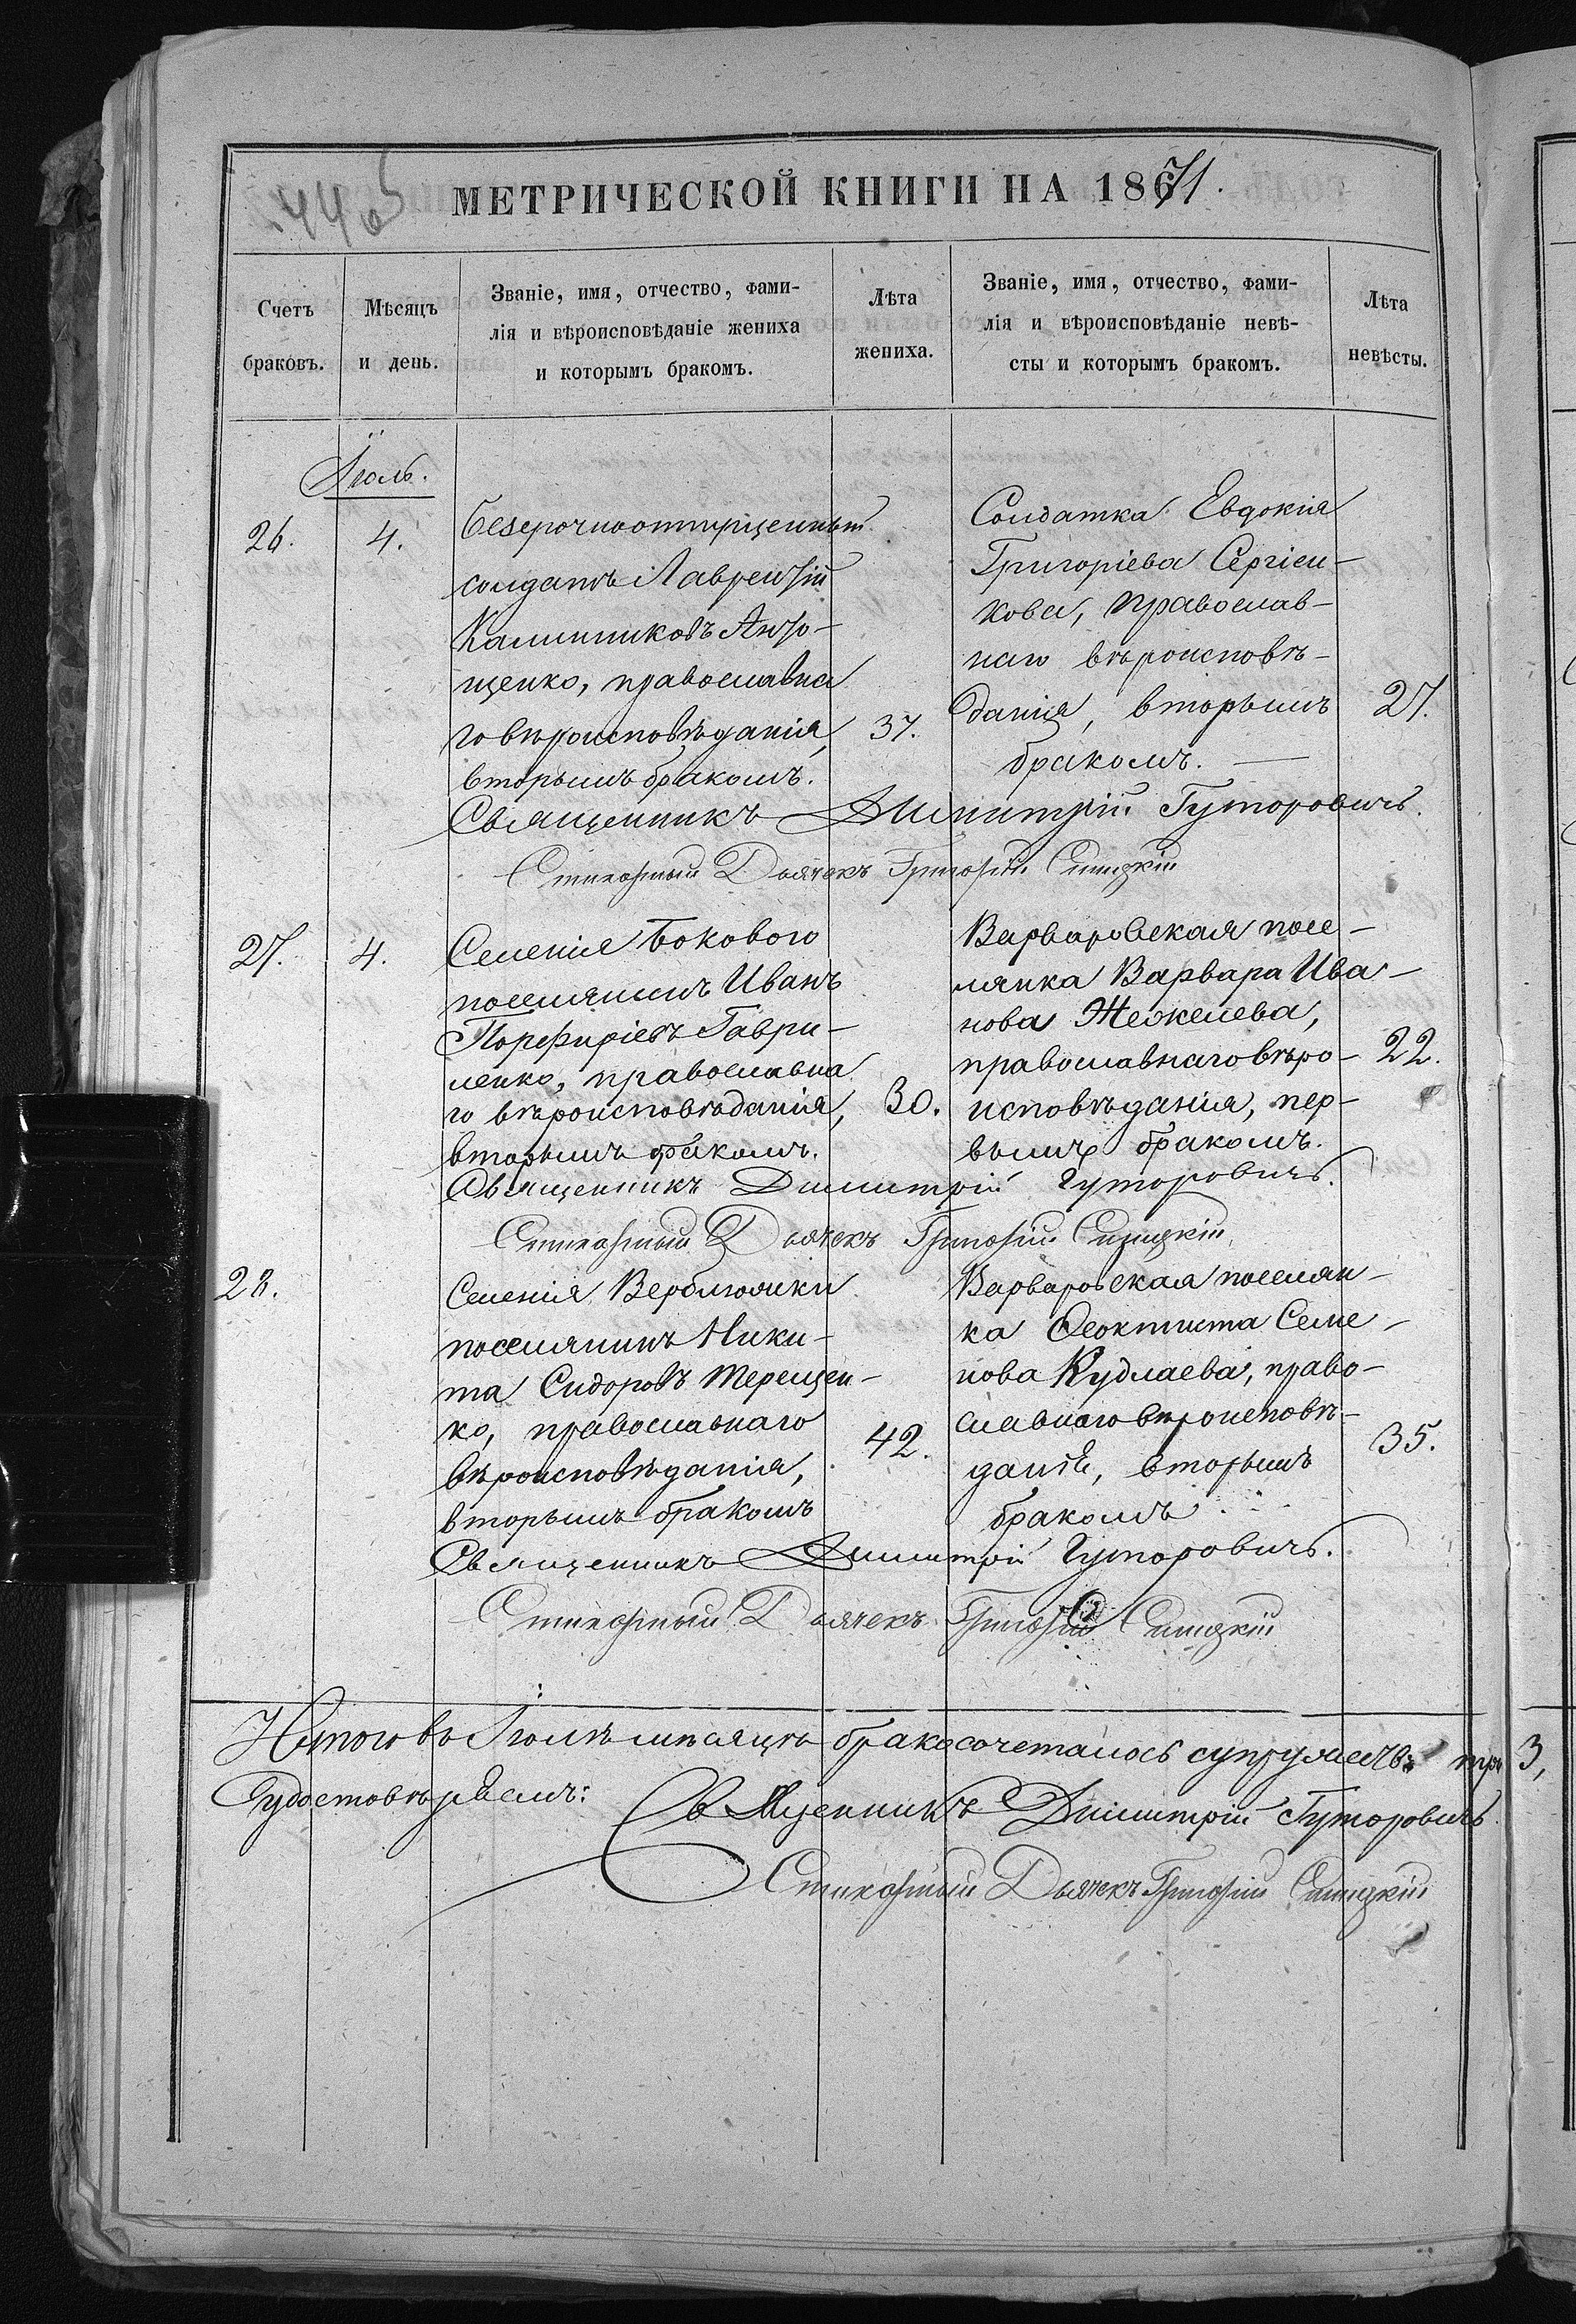 МЕТРИЧЕСКОЙ КНИГИ НА 1871.
Счетъ браковъ.
Мѣсяцъ и день.
Званіе, имя, отчество, фами-
лія и вѣроисповѣданіе жениха
и которымъ бракомъ.
Лѣта жениха.
Званіе, имя, отчество, фами-
лія и вѣроисповѣданіе невѣ-
сты и которымъ бракомъ.
Лѣта невѣсты.
Іюль.
26.
4.
солдатъ Лаврентій
Калинниковъ
щенко, православна
го вѣроисповѣданія,
вторымъ бракомъ.
37.
Солдатка Евдокія
Григоріева Сергіен-
кова, православ-
наго вѣроисповѣ-
данія, вторымъ
бракомъ.
27.
Священникъ Димитрій Гуторовичъ.
Стихарный Дьячекъ Григорій
27.
4.
Селенія Бокового
поселянинъ Иванъ
Порфиріевъ Гаври-
ленко, православна
го вѣроисповѣданія,
вторымъ бракомъ.
30.
Варваровская посе-
лянка Варвара Ива-
нова Жежелева,
православнаго вѣро-
исповѣданія, пер-
вымъ бракомъ.
22.
Священникъ Димитрій Гуторовичъ.
Стихарный Дьячекъ Григорій
28.
Селенія Вербиоляки
поселянинъ Ники-
та Сидоровъ Терещен-
ко, православнаго
вѣроисповѣданія,
вторымъ бракомъ
42.
Варваровская поселян-
ка Феоктиста Семе-
нова Кудлаева, право-
славнаго вѣроисповѣ-
данія, вторымъ
бракомъ
35.
Священникъ Димитрій Гуторовичъ.
Стихарный Дьячекъ Григорій
Итого въ Іюлѣ мѣсяцѣ бракосочеталось супружествъ три 3,
Удостовѣряемъ:
Священникъ Димитрій Гуторовичъ
Стихарный Дьячекъ Григорій